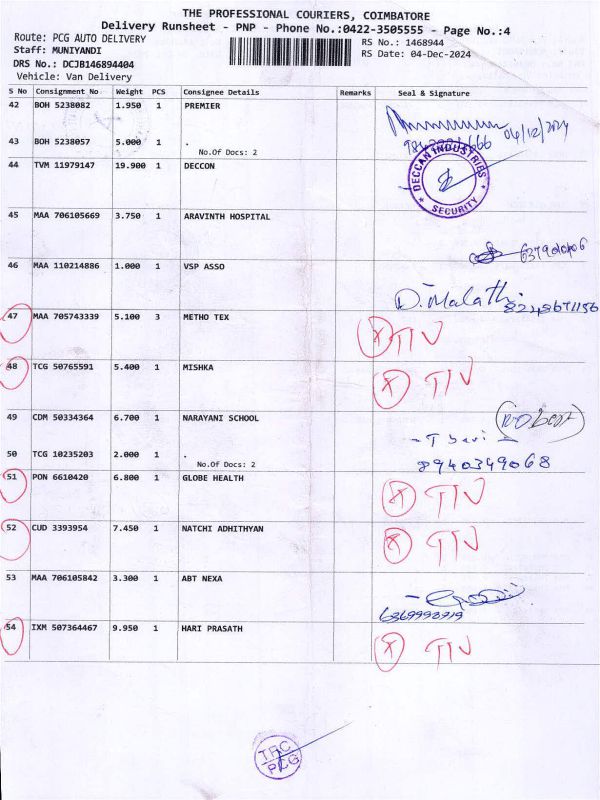 THE PROFESSIONAL COURIERS, COIMBATORE
Delivery Runsheet - PNP - Phone No.:0422-3505555 - Page No.:4
Route: PCG AUTO DELIVERY
RS No.: 1468944
Staff: MUNIYANDI
RS Date: 04-Dec-2024
DRS No.: DCJB146894404
Vehicle: Van Delivery
S No Consignment No Weight PCS Consignee Details Remarks Seal & Signature
42 BOH 5238082 1.950 1 PREMIER
04/12/2024
43 BOH 5238057 5.000 1 .
No.Of Docs: 2
44 TVM 11979147 19.900 1 DECCON
DECCAN INDUSTRIES
SECURITY
45 MAA 706105669 3.750 1 ARAVINTH HOSPITAL
46 MAA 110214886 1.000 1 VSP ASSO
D. Malathi
47 MAA 705743339 5.100 3 METHO TEX
X TIV
48 TCG 50765591 5.400 1 MISHKA
X TIV
49 CDM 50334364 6.700 1 NARAYANI SCHOOL
50 TCG 10235203 2.000 1 .
8940349068
No.Of Docs: 2
51 PON 6610420 6.800 1 GLOBE HEALTH
X TIV
52 CUD 3393954 7.450 1 NATCHI ADHITHYAN
X TIV
53 MAA 706105842 3.300 1 ABT NEXA
54 IXM 507364467 9.950 1 HARI PRASATH
X TIV
PCG